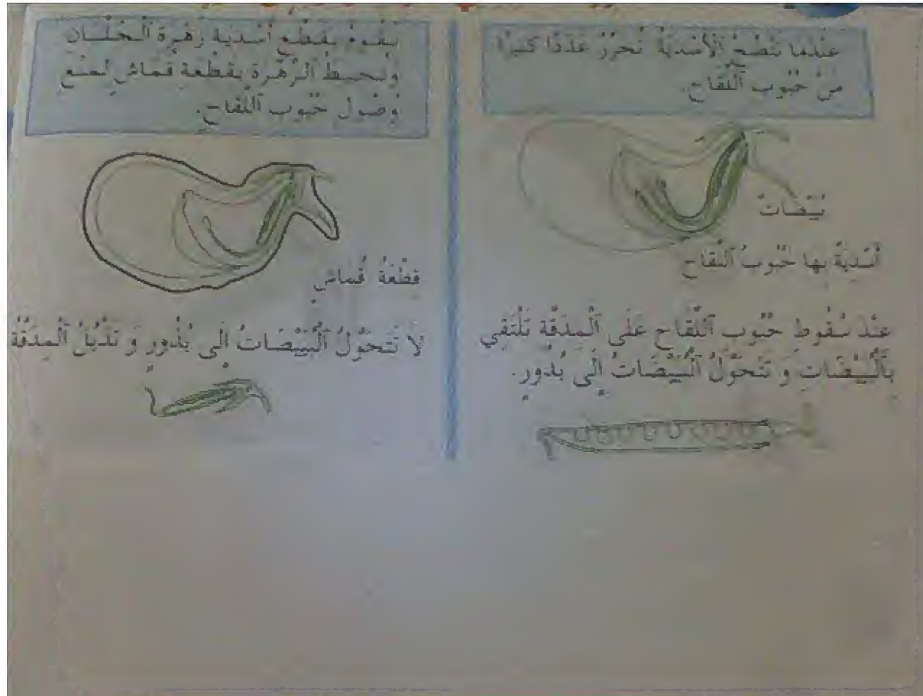 عِنْدَمَا تَنْضُجُ ٱلْأَسْدِيَةُ تُحَرِّرُ عَدَدًا كَبِيرًا
مِنْ حُبُوبِ ٱللِّقَاحِ.
بُيَيْضَاتٌ
أَسْدِيَةٌ بِها حُبُوبُ ٱللِّقَاحِ
عِنْدَ سُقُوطِ حُبُوبِ ٱللِّقَاحِ عَلَى ٱلْمِدَقَّةِ تَلْتَقِي
بِٱلْبُيَيْضَاتِ وَ تَتَحَوَّلُ ٱلْبُيَيْضَاتُ إِلَى بُذُورٍ.
نَقُومُ بِقَطْعِ أَسْدِيَةِ زَهْرَةِ ٱلْجُلْبَانِ
وَنُحِيطُ ٱلزَّهْرَةَ بِقِطْعَةِ قُمَاشٍ لِمَنْعِ
وُصُولِ حُبُوبِ ٱللِّقَاحِ.
قِطْعَةُ قُمَاشٍ
لَا تَتَحَوَّلُ ٱلْبُيَيْضَاتُ إِلَى بُذُورٍ وَ تَذْبُلُ ٱلْمِدَقَّةُ